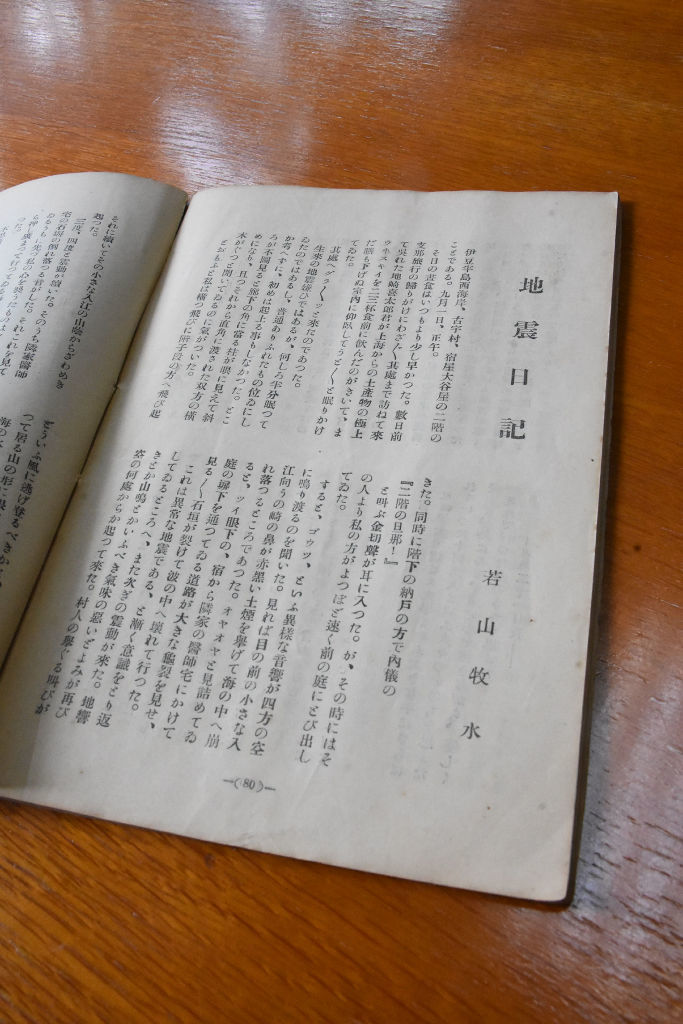 地震日記
若山牧水
伊豆半島西海岸、古宇村、宿屋大谷屋の二階の
ことである。九月一日、正午。
その日の晝食はいつもより少し早かつた。數日前
支那旅行の歸りがけにわざ〳〵其處まで訪ねて來
て呉れた地崎喜太郎君が上海からの土産物の極上
ウヰスキイを二三杯食前に飮んだのがきいて、ま
だ膳も下げぬ室内に仰臥してうと〳〵と眠りかけ
てゐた。
其處へグラ〳〵ツと來たのであつた。
生來の地震ぎらひではあるが、何しろ半分眠つて
ゐたのではあるし、普通ありふれたもの位ゐにし
か考へずに、初めは起上る事もしなかつた。とこ
ろが不圖見ると廊下の角に當る柱が眼に見えて斜
めになり、且つそれから直角に渡された双方の横
木がぐつと開いてゐるのに氣がついた。
とおもふと私は横つ飛びに階子段の方へ飛び起
きた。同時に階下の納戸の方で内儀の
『二階の旦那!』
と叫ぶ金切聲が耳に入つた。が、その時にはそ
の人より私の方がよつぽど速く前の庭にとび出し
てゐた。
すると、ゴウツ、といふ異樣な音響が四方の空
に鳴り渡るのを聞いた。見れば目の前の小さな入
江向うの崎の鼻が赤黒い土煙を擧げて海の中へ崩
れ落つるところであつた。オヤオヤと見詰めてゐ
ると、ツイ眼下の、宿から隣家の醫師宅にかけて
庭の廊下を通つてゐる道路が大きな龜裂を見せ、
見る〳〵石垣が裂けて波の中へ壞れて行つた。
これは異常な地震である、と漸く意識をとり返
してゐるところへ、また次ぎの震動が來た。地響
きとか山鳴とかいふべき氣味の惡いどよみが再び
空の何處からか起つて來た。村人の擧ぐる叫びが
—(80)—
それに續いてその小さな入江の山蔭からさわめき
起つた。
三度、四度と震動が續いた。そのうち隣家醫師
宅の石垣の倒れ落つる音がした。それこれを見て
どういふ風に逃げ登るべきか
つて居る山の形に眼